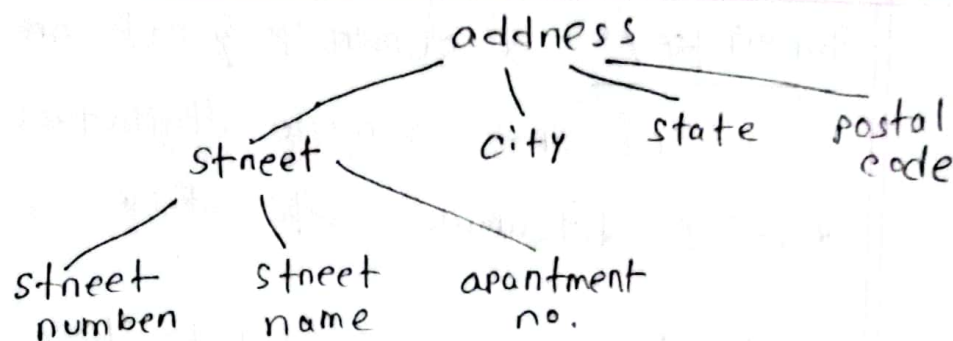 address
street city state postal code
street number street name apartment no.